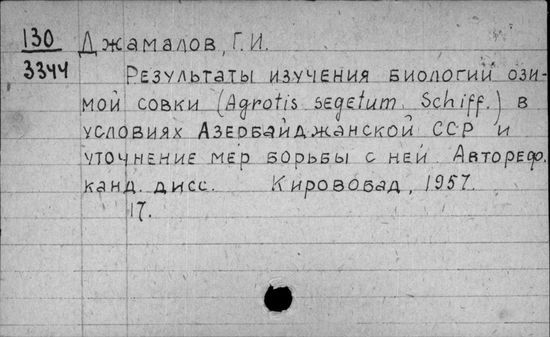 130 Джамалов, Г. И.
3344 Результаты изучения биологии ози-
мой совки (Agrotis segetum Schiff.) в
условиях Азербайджанской ССР и
уточнение мер борьбы с ней. Автореф.
канд. дисс. Кировобад, 1957.
17.